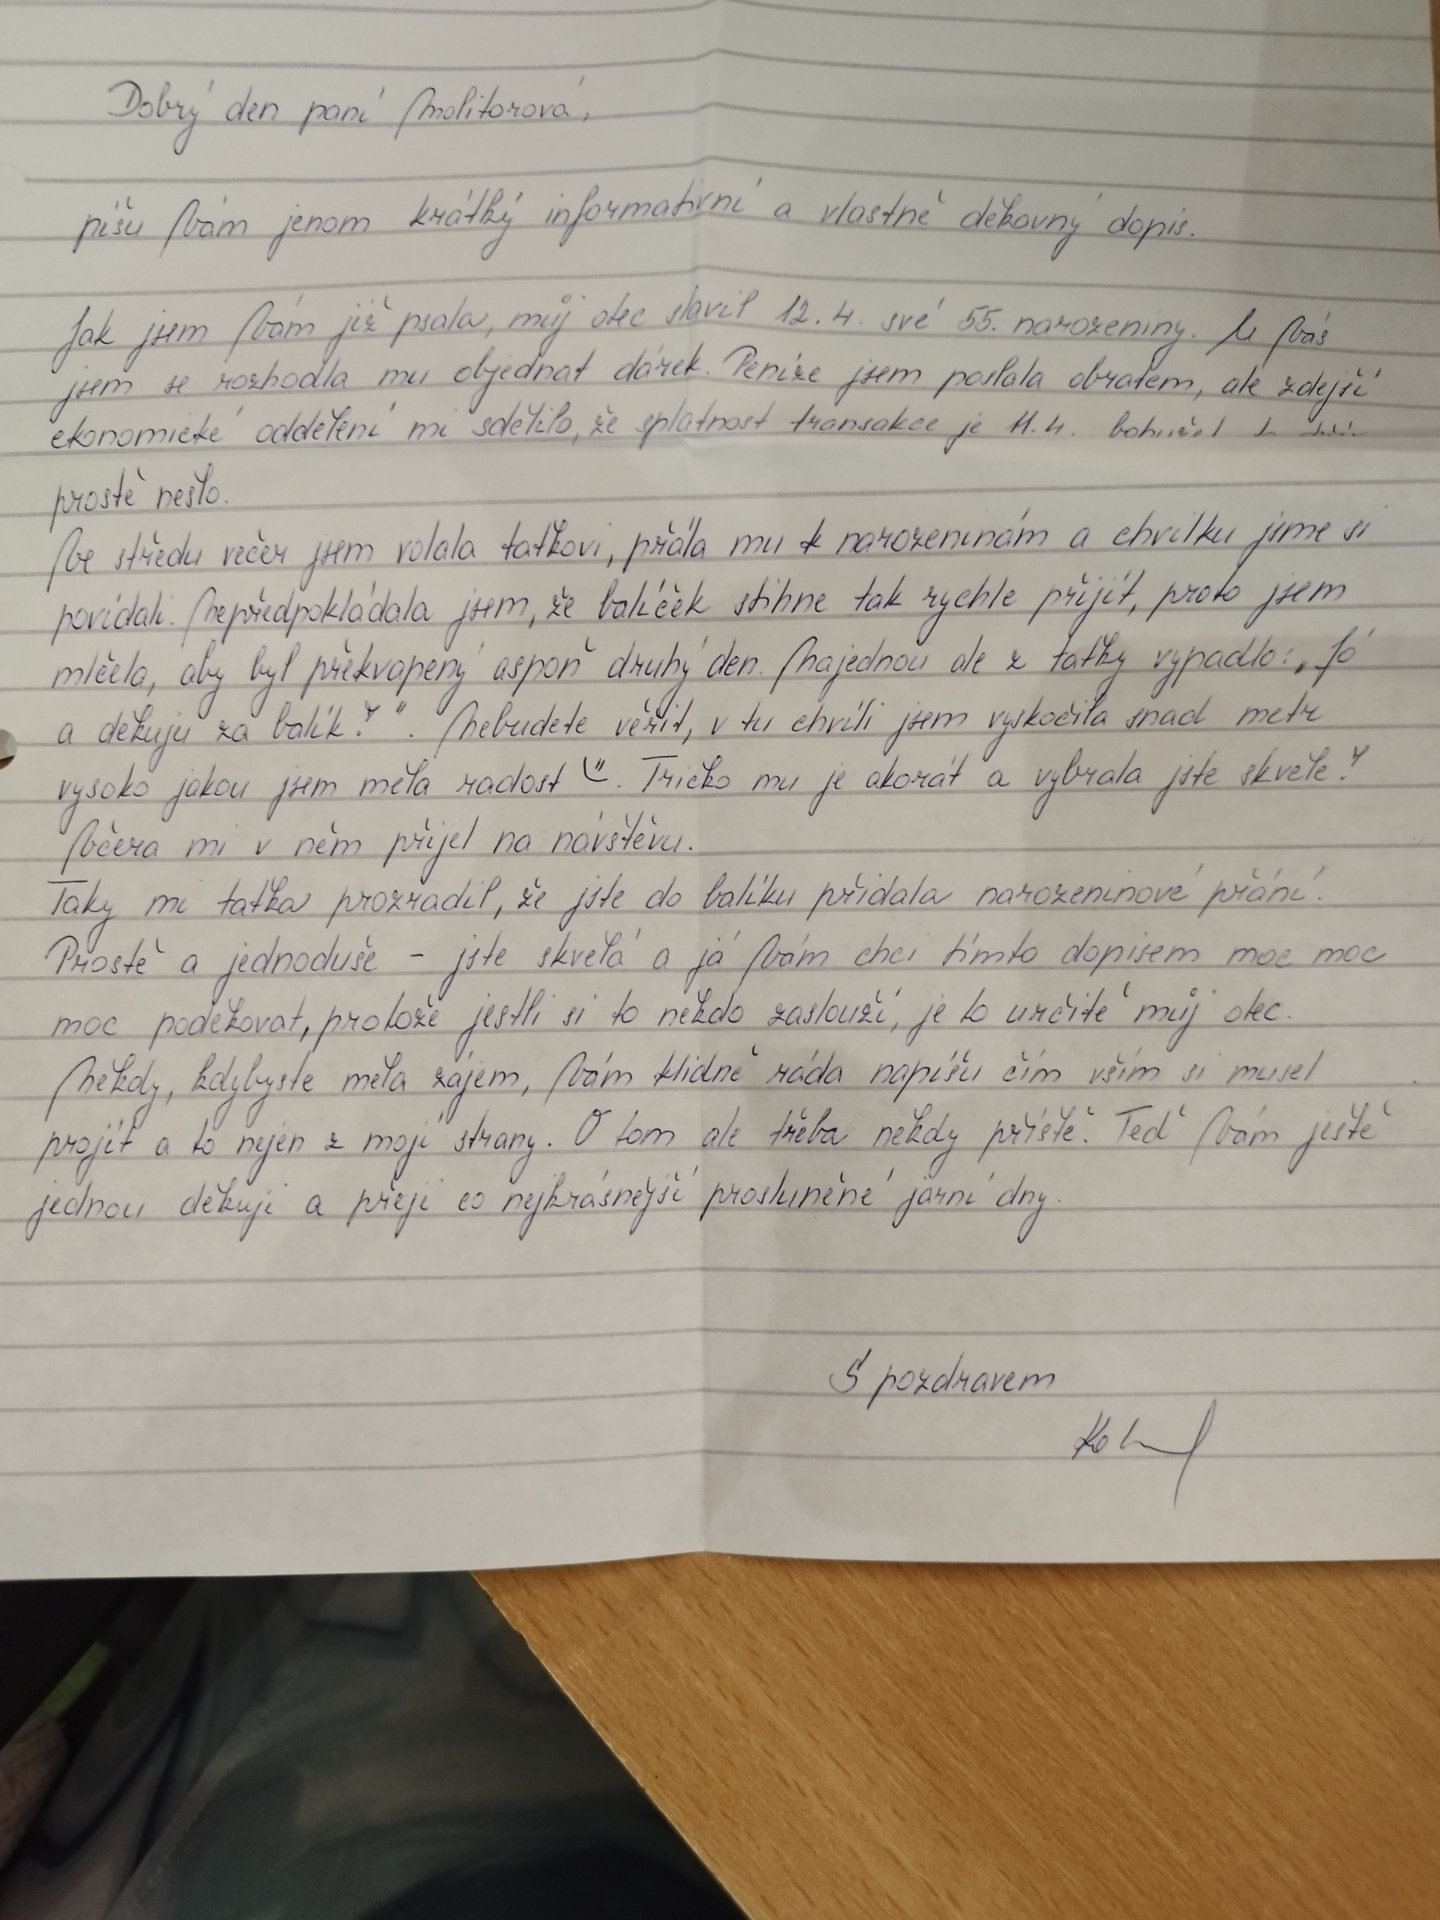 Dobrý den paní Molitorová,
píšu Vám jenom krátký informativní a vlastně děkovný dopis.
Jak jsem Vám již psala, můj otec slavil 12.4. své 55. narozeniny. U Vás
jsem se rozhodla mu objednat dárek. Peníze jsem poslala obratem, ale zdejší
ekonomické oddělení mi sdělilo, že splatnost transakce je 11.4. bohužel
prostě nešlo.
Ve středu večer jsem volala taťkovi, přála mu k narozeninám a chvilku jsme si
povídali. Nepředpokládala jsem, že balíček stihne tak rychle přijít, proto jsem
mlčela, aby byl překvapený aspoň druhý den. Najednou ale z taťky vypadlo: „Jó
a děkuju za balík!". Nebudete věřit, v tu chvíli jsem vyskočila snad metr
vysoko jakou jsem měla radost ☺. Tričko mu je akorát a vybrala jste skvěle!
Včera mi v něm přijel na návštěvu.
Taky mi taťka prozradil, že jste do balíku přidala narozeninové přání.
Prostě a jednoduše - jste skvělá a já Vám chci tímto dopisem moc moc
moc poděkovat, protože jestli si to někdo zaslouží, je to určitě můj otec.
Někdy, kdybyste měla zájem, Vám klidně ráda napíšu čím vším si musel
projít a to nejen z mojí strany. O tom ale třeba někdy příště. Teď Vám ještě
jednou děkuji a přeji co nejkrásnější prosluněné jarní dny.
S pozdravem